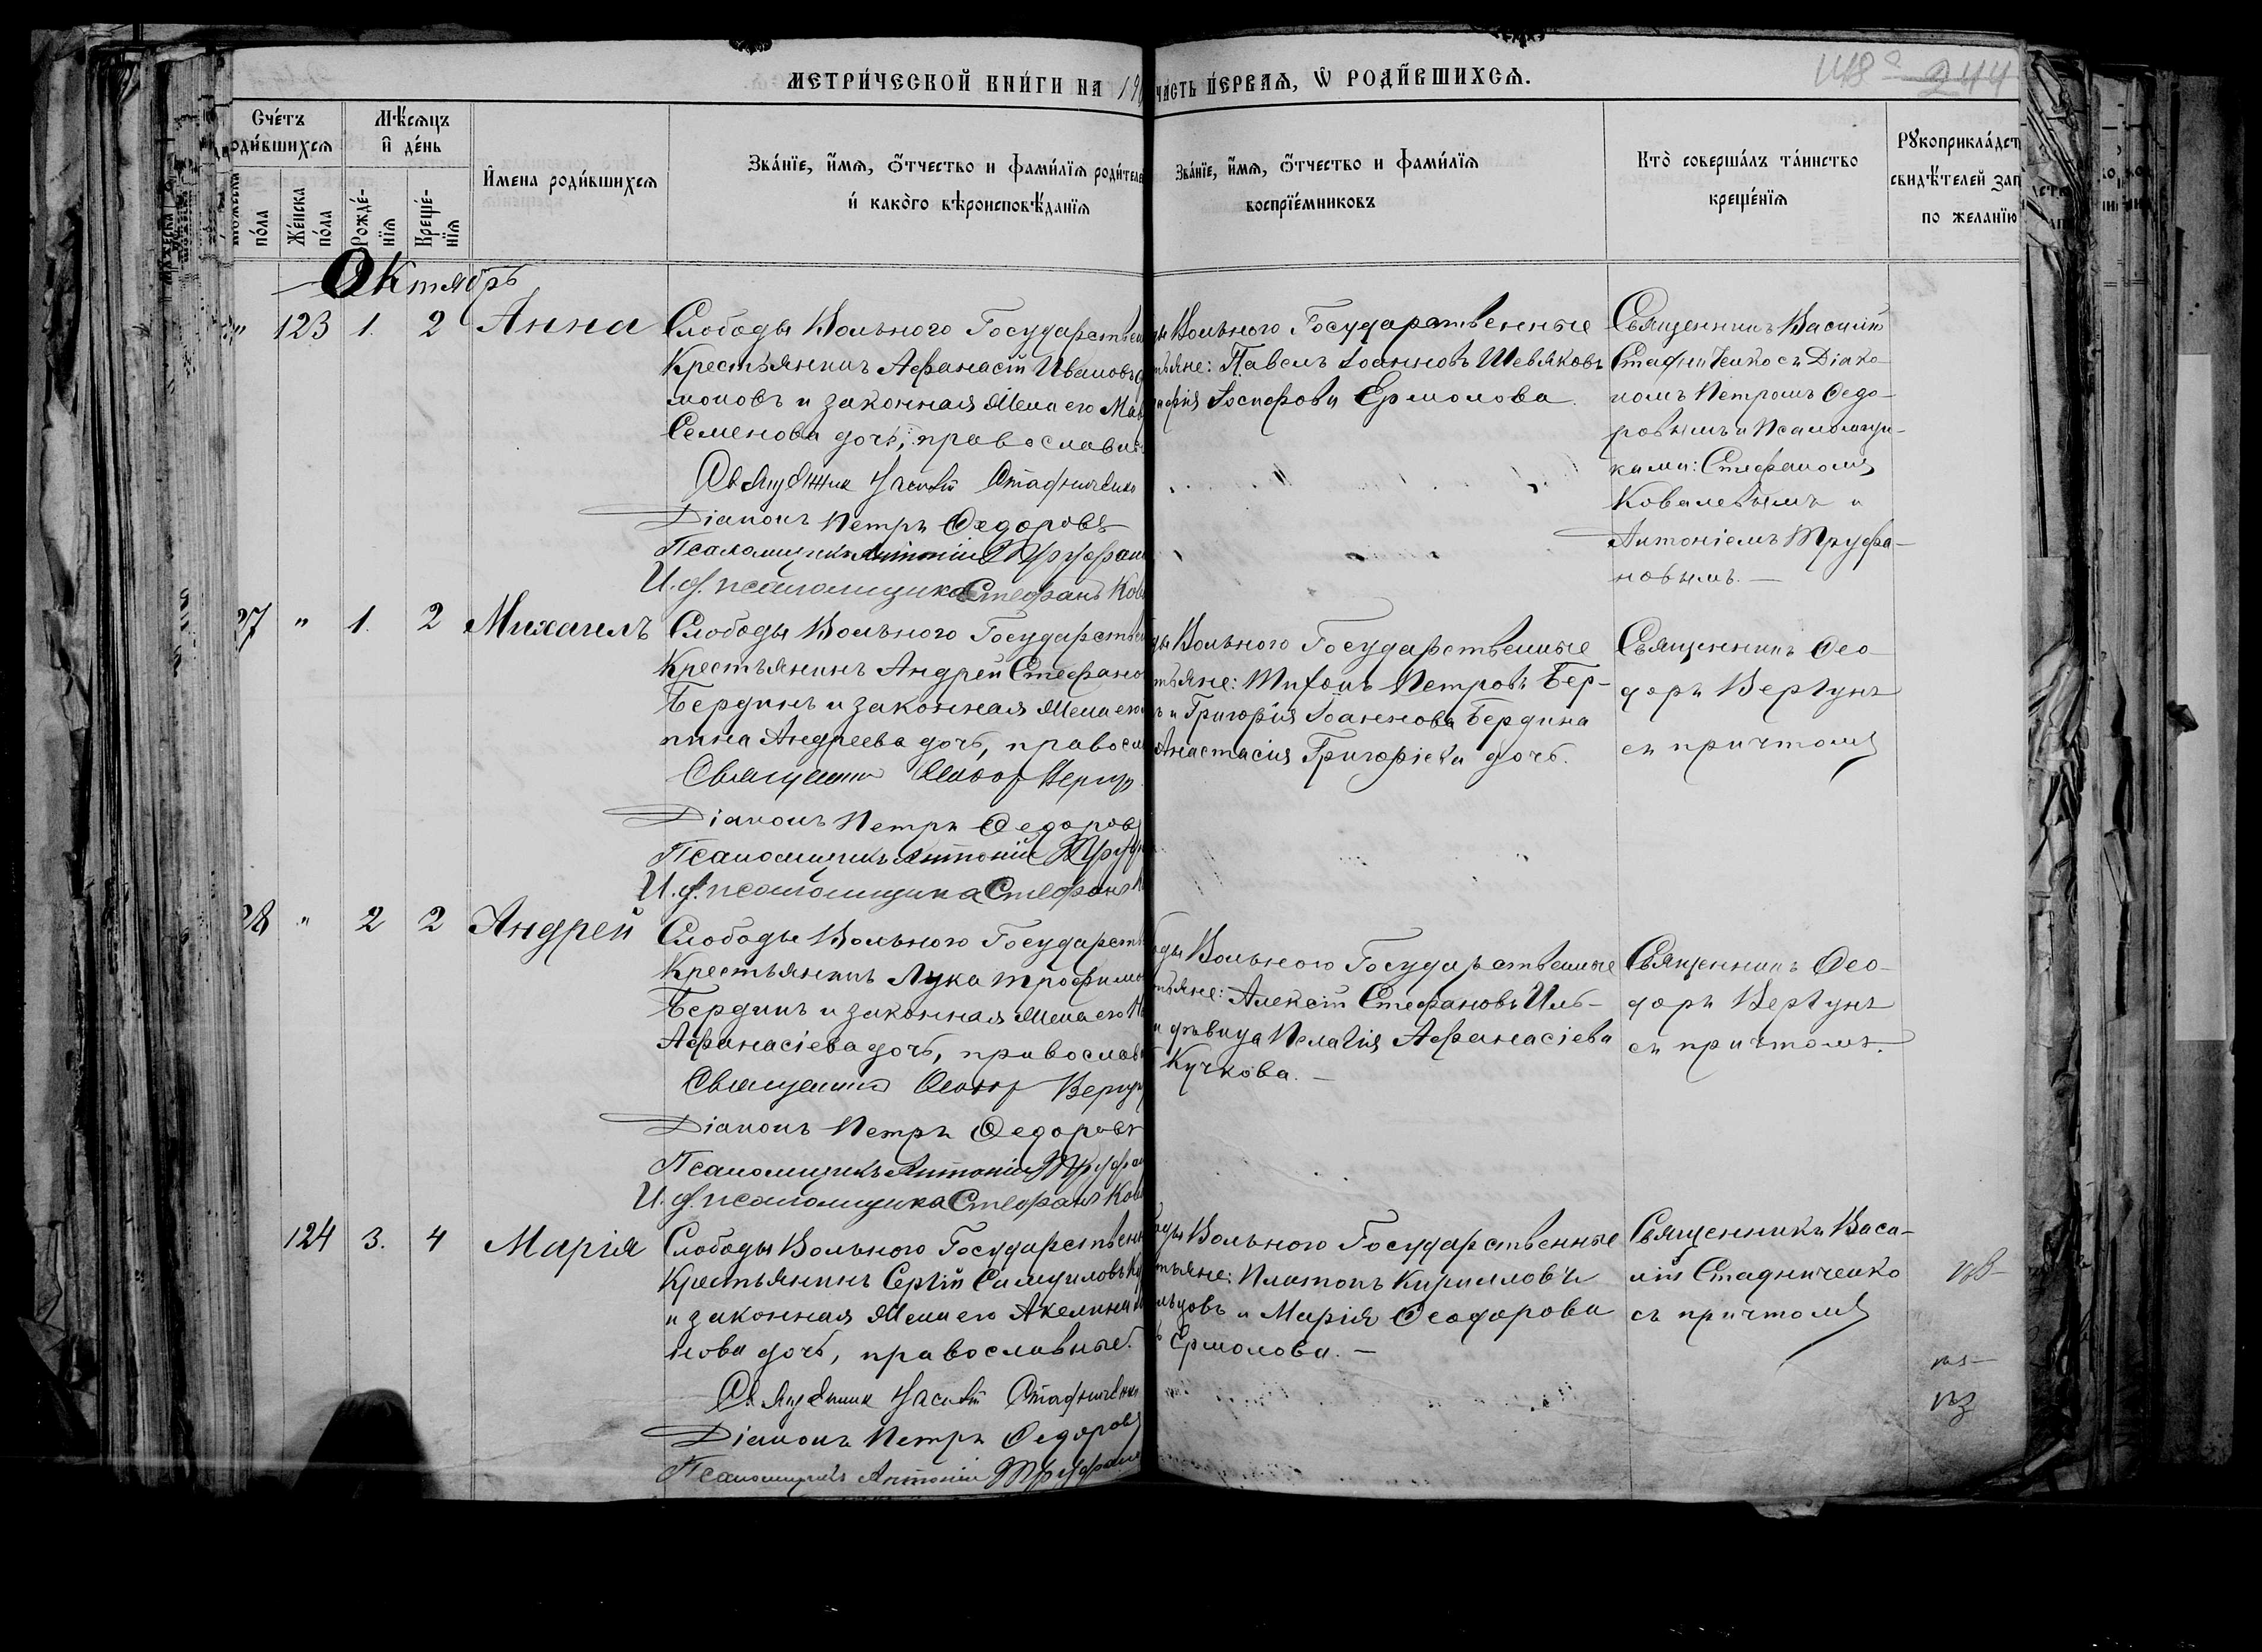 МЕТРИ́ЧЕСКОЙ КНИ́ГИ НА 190
ЧА́СТЬ ПЕ́РВАЯ, Ѡ РОДИ́ВШИХСЯ.
148 244
Сче́тъ
оди́вшихся
Мѣ́сяцъ
и҆ де́нь
И҆мена роди́вшихся
Зва́нїе, и҆́мя, ѻ҆́тчество и фами́лїя роди́теле
и҆ како́го вѣроисповѣ́данїя
Зва́нїе, и҆́мя, ѻ҆́тчество и фами́лїя
воспрїе́мниковъ
Кто̀ соверша́лъ та́инство
креще́нїя
Рꙋкоприкла́дст
свидѣ́телей зап
по жела́нїю
по́ла
Же́нска
по́ла
Рожде́-
нїя
Креще́-
нїя
Октябрь
" 123 1. 2 Анна
Слободы Вольного Государствен
Крестьянинъ Афанасій Ивановъ
моновъ и законная жена его Ма
Семенова дочь, православн
Священник Василій Стадниченко
Діаконъ Петръ Федоровъ
Псаломщикъ Антоній Труфан
И. д. псаломщика Стефанъ Ков
ды Вольного Государственные
тьяне: Павелъ Іоанновъ Шевяковъ
афія Іосифова Ермолова.
Священникъ Василій
Стадниченко съ Діако-
номъ Петромъ Федо-
ровымъ и Псаломщи-
ками: Стефаномъ
Ковалевымъ и
Антоніемъ Труфа-
новымъ. —
27 " 1. 2 Михаилъ
Слободы Вольного Государствен
Крестьянинъ Андрей Стефано
Бердинъ и законная жена его
пина Андреева дочь, правосл
Священник Феодор Вергун
Діаконъ Петръ Федоровъ
Псаломщикъ Антоній Труф
И. д. псаломщика Стефанъ К
ды Вольного Государственные
тьяне: Тихонъ Петровъ Бер-
ъ и Григорія Іоаннова Бердина
Анастасія Григоріева дочь.
Священникъ Фео-
доръ Вергунъ
съ причтомъ
28 " 2 2 Андрей
Слободы Вольного Государств
Крестьянинъ Лука Трофимо
Бердинъ и законная жена его
Афанасіева дочь, православ
Священник Феодор Вергун
Діаконъ Петръ Федоровъ
Псаломщикъ Антоній Труфан
И. д. псаломщика Стефанъ Ков
оды Вольного Государственные
тьяне: Алексій Стефановъ Иль-
и дѣвица Пелагія Афанасіева
Кучкова. —
Священникъ Фео-
доръ Вергунъ
съ причтомъ.
124 3. 4 Марія
Слободы Вольного Государственн
Крестьянинъ Сергій Самуиловъ
и законная жена его Акелина
нова дочь, православные.
Священник Василій Стадниченко
Діаконъ Петръ Федоровъ
Псаломщикъ Антоній Труфан
оды Вольного Государственные
тьяне: Платонъ Кирилловъ
льцовъ и Марія Феодорова
Ермолова. —
Священникъ Васи-
лій Стадниченко
съ причтомъ